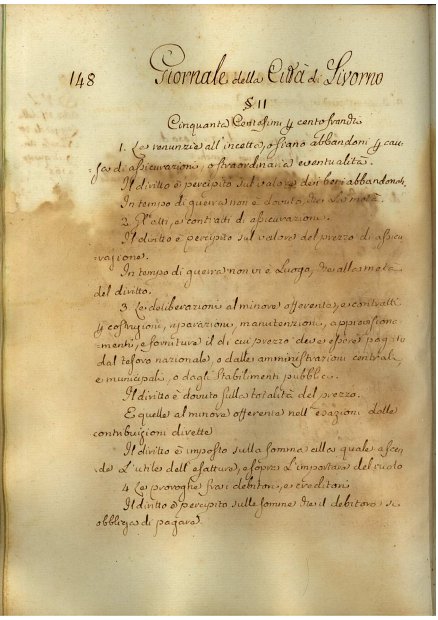 148 Giornale della Città di Livorno
§ II
Cinquanta Centesimi p cento franchi
1. Le renunzie all'incetta, o siano abbandoni p cau-
sa di assicurazioni, o straordinaria eventualità.
Il diritto è percipito sul valore dei beni abbandonati,
In tempo di guerra non è dovuto, che la metà.
2. atti, e contratti di assicurazione.
Il diritto è percipito sul valore del prezzo di assicu-
razione.
In tempo di guerra non vi è Luogo, che alla metà
del diritto.
3. Le deliberazioni al minore offerente, e contratti
p costruzioni, riparazioni, manutenzioni, approvisiona-
menti, e forniture il di cui prezzo deve essere pagato
dal tesoro nazionale, o dalle amministrazioni centrali,
e municipali, o dagli stabilimenti pubblici.
Il diritto è dovuto sulla totalità del prezzo.
E quelle al minore offerente nell'esazioni delle
contribuzioni dirette
Il diritto è imposto sulla somma alla quale ascen-
de L'utile dell'esattore, e sopra L'importare del ruolo
4. Le proroghe fra si debitori, e creditori
Il diritto è percipito sulle somme che il debitore si
obbliga di pagare.